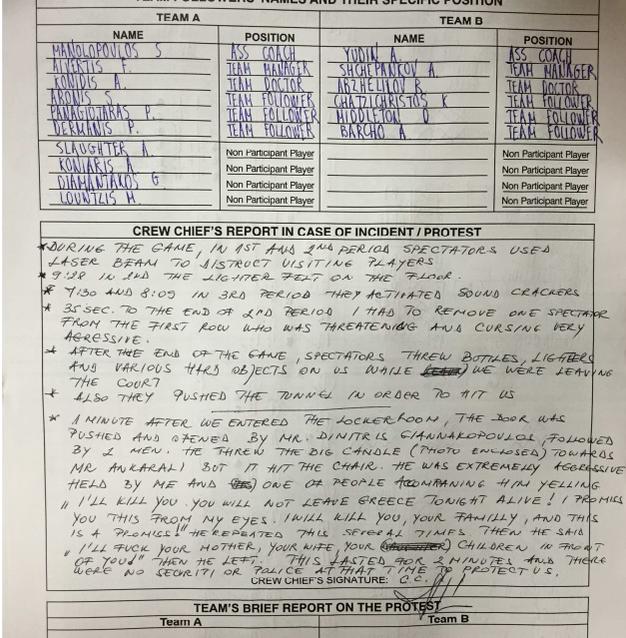 TEAM FOLLOWERS' NAMES AND THEIR SPECIFIC POSITION
TEAM A TEAM B
NAME POSITION NAME POSITION
MANOLOPOULOS S ASS COACH YUDIN A. ASS COACH
ALVERTIS F. TEAM MANAGER SHCHEPANKOV A. TEAM MANAGER
KONIDIS A. TEAM DOCTOR ABZHELILOV R. TEAM DOCTOR
ARONIS S. TEAM FOLLOWER CHATZICHRISTOS K TEAM FOLLOWER
PANAGIOTARAS P. TEAM FOLLOWER MIDDLETON D TEAM FOLLOWER
DERMANIS P. TEAM FOLLOWER BARCHO A TEAM FOLLOWER
SLAUGHTER A. Non Participant Player Non Participant Player
KONIARIS A. Non Participant Player Non Participant Player
DIAMANTAKOS G Non Participant Player Non Participant Player
LOUNTZIS M. Non Participant Player Non Participant Player
CREW CHIEF'S REPORT IN CASE OF INCIDENT / PROTEST
* DURING THE GAME, IN 1ST AND 2ND PERIOD SPECTATORS USED
LASER BEAM TO DISTRUCT VISITING PLAYERS
* 9:28 IN 2ND THE LIGHTER FELT ON THE FLOOR.
* 7:30 AND 8:09 IN 3RD PERIOD THEY ACTIVATED SOUND CRACKERS
* 35 SEC. TO THE END OF 2RD PERIOD I HAD TO REMOVE ONE SPECTATOR
FROM THE FIRST ROW WHO WAS THREATENING AND CURSING VERY
AGRESSIVE.
* AFTER THE END OF THE GAME, SPECTATORS THREW BOTTLES, LIGHTERS
AND VARIOUS HARD OBJECTS ON US WHILE WE WERE LEAVING
THE COURT
* ALSO THEY PUSHED THE TUNNEL IN ORDER TO HIT US
* 1 MINUTE AFTER WE ENTERED THE LOCKERROOM, THE DOOR WAS
PUSHED AND OPENED BY MR. DIMITRIS GIANNAKOPOULOS, FOLLOWED
BY 2 MEN. HE THREW THE BIG CANDLE (PHOTO ENCLOSED) TOWARDS
MR ANKARALI BUT IT HIT THE CHAIR. HE WAS EXTREMELLY AGGRESSIVE
HELD BY ME AND ONE OF PEOPLE ACOMPANING HIM YELLING
„I'LL KILL YOU. YOU WILL NOT LEAVE GREECE TONIGHT ALIVE! I PROMISS
YOU THIS FROM MY EYES. I WILL KILL YOU, YOUR FAMILLY, AND THIS
IS A PROMISS!" HE REPEATED THIS SEVERAL TIMES. THEN HE SAID
„I'LL FUCK YOUR MOTHER, YOUR WIFE, YOUR CHILDREN IN FRONT
OF YOU!" THEN HE LEFT. THIS LASTED FOR 2 MINUTES AND THERE
WERE NO SECURITI OR POLICE AT THAT TIME TO PROTECT US.
CREW CHIEF'S SIGNATURE: C.C.
TEAM'S BRIEF REPORT ON THE PROTEST
Team A Team B